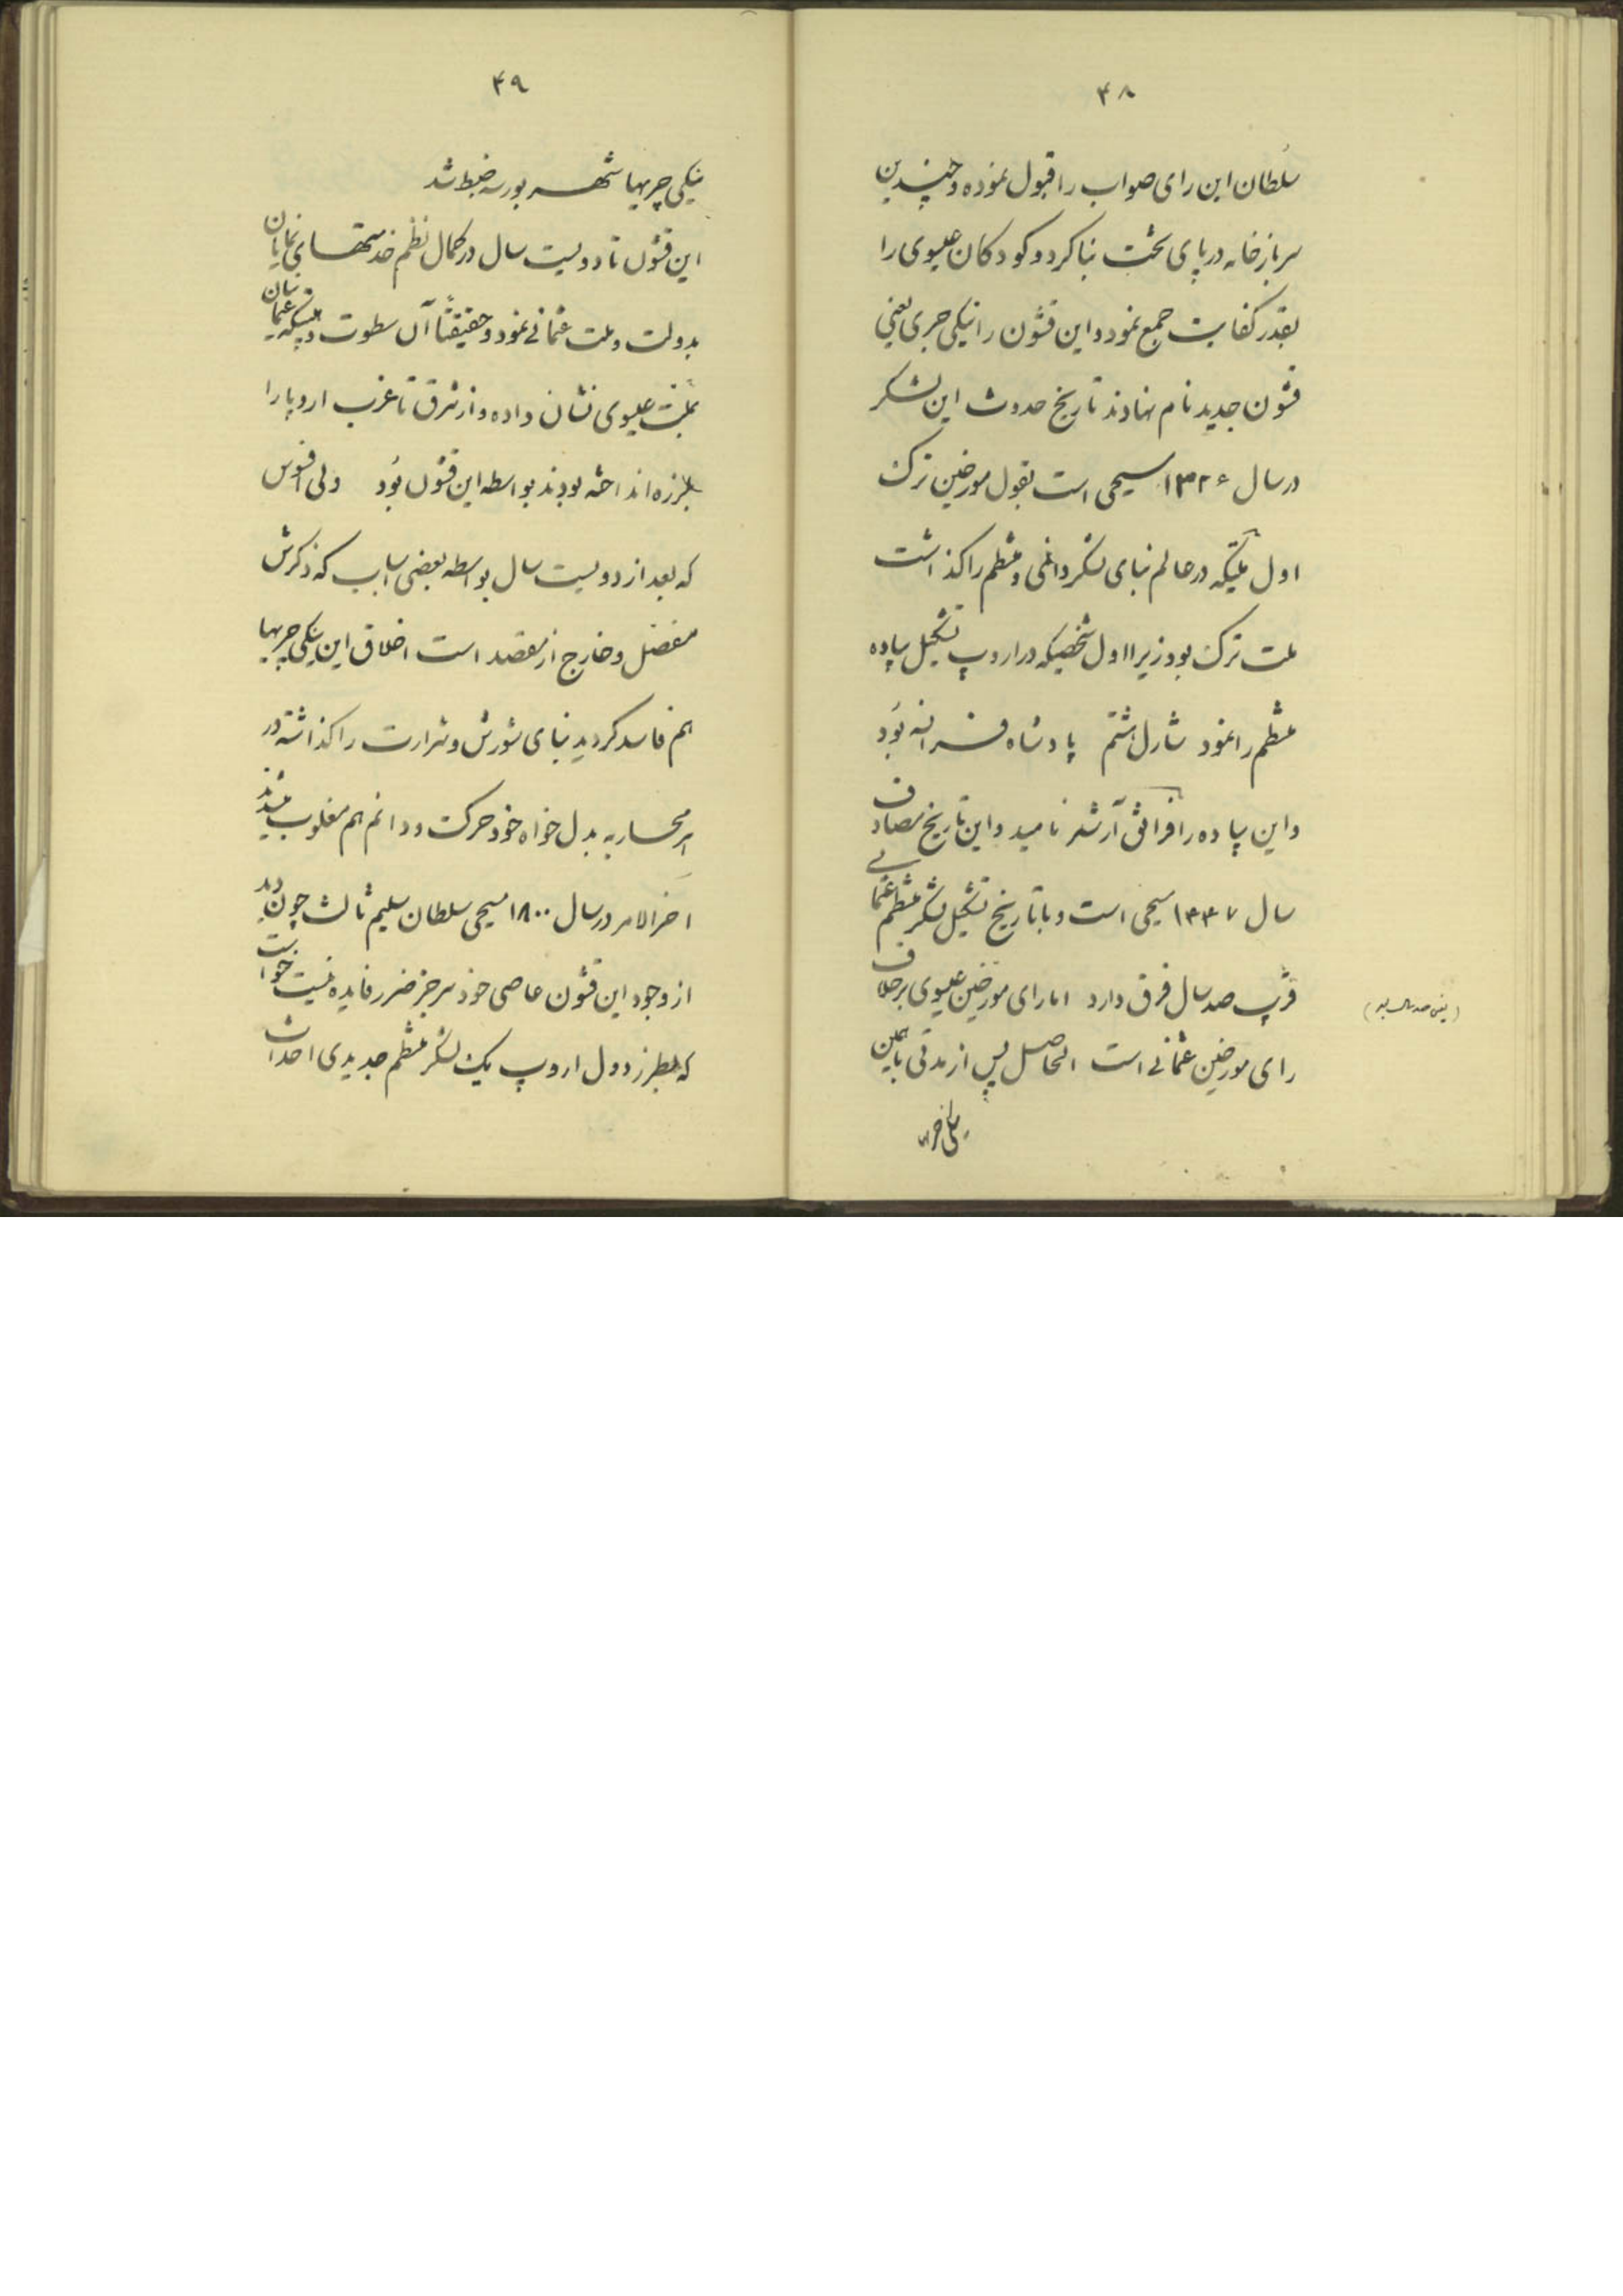 ۴۸
سلطان این رای صواب را قبول نموده و چندین
سربازخانه در پای تخت بنا کرد و کودکان عیسوی را
بقدر کفایت جمع نمود و این قشون را نیکی چری یعنی
قشون جدید نام نهادند تاریخ حدوث این لشکر
در سال ۱۳۲۶ مسیحی است بقول مورخین ترک
اول ملتیکه در عالم بنای لشکر دائمی و منظم را گذاشت
ملت ترک بود زیرا اول شخصیکه در اروپ تشکیل پیاده
منظم را نمود شارل هشتم پادشاه فرانسه بود
و این پیاده را فرانش آرشر نامید و این تاریخ مصادف
سال ۱۴۴۷ مسیحی است و با تاریخ تشکیل لشکر منظم عثمانی
قریب صد سال فرق دارد اما رای مورخین عیسوی برخلاف
رای مورخین عثمانی است الحاصل پس از مدتی با همین
(یعنی صد سال بعد)
۴۹
نیکی چریها شهر بورسه ضبط شد
این قشون تا دویست سال در کمال نظم خدمتهای نمایان
بدولت و ملت عثمانی نمود و حقیقتاً آن سطوت و عثمانیان
بملت عیسوی نشان داده و از شرق تا غرب اروپا را
بلرزه انداخته بودند بواسطه این قشون بود ولی افسوس
که بعد از دویست سال بواسطه بعضی اسباب که ذکرش
مفصل و خارج از مقصد است اخلاق این نیکی چریها
هم فاسد گردید بنای شورش و شرارت را گذاشته در
هر محاربه بدل خواه خود حرکت و دائم هم مغلوب میشدند
آخر الامر در سال ۱۸۰۰ مسیحی سلطان سلیم ثالث چون دید
از وجود این قشون عاصی خودسر جز ضرر فایده نیست خواست
که بطرز دول اروپ یک لشکر منظم جدیدی احداث